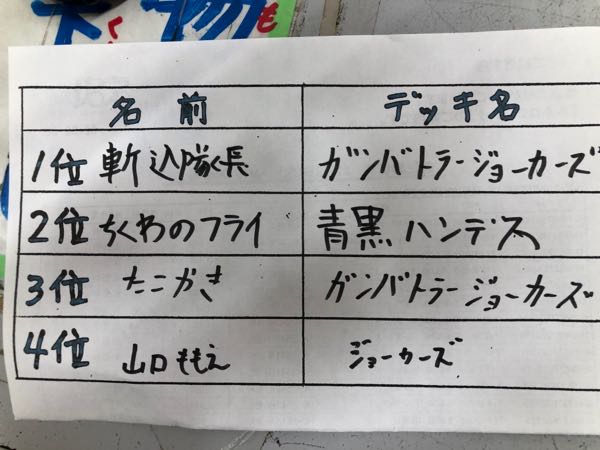 名前 デッキ名
1位 斬込隊長 ガンバトラージョーカーズ
2位 ちくわのフライ 青黒ハンデス
3位 たこかき ガンバトラージョーカーズ
4位 山口ももえ ジョーカーズ